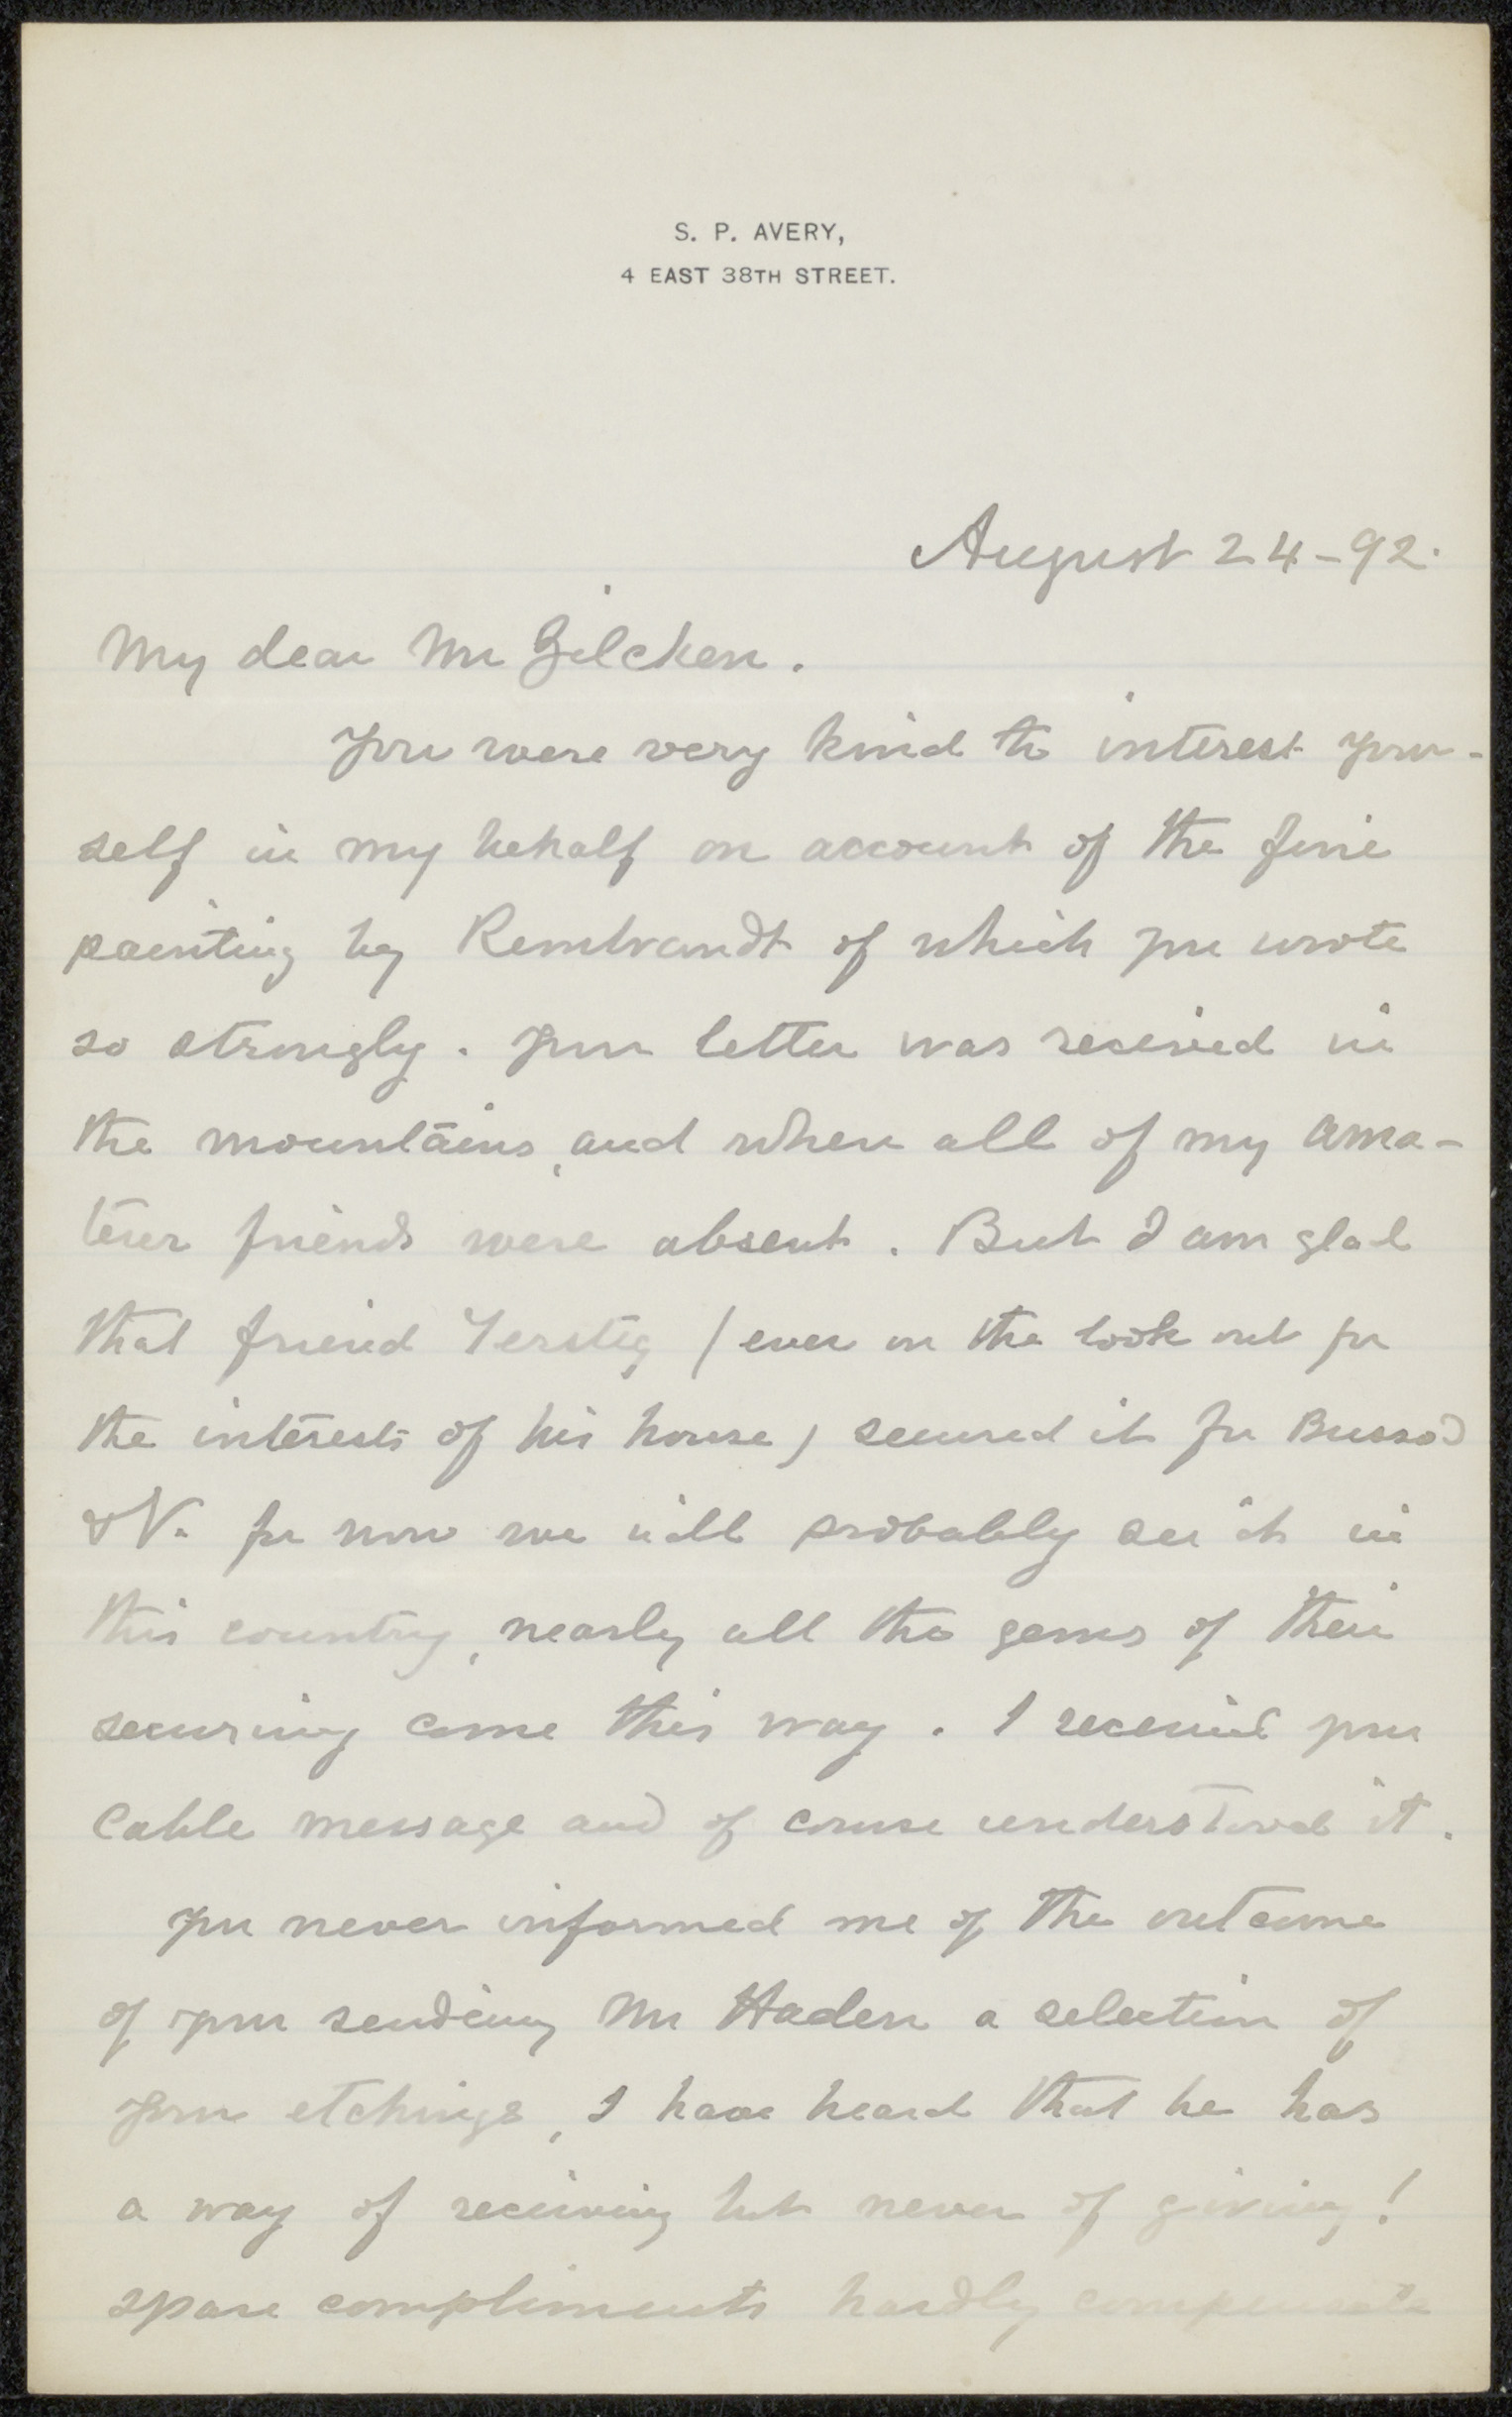 S. P. AVERY,
4 EAST 38TH STREET.
August 24-92.
My dear Mr Zilcken.
You were very kind to interest your-
self in my behalf on account of the fine
painting by Rembrandt of which you wrote
so strongly. Your letter was received in
the mountains, and when all of my ama-
teur friends were absent. But I am glad
that friend Tersteg (ever on the look out for
the interests of his house) secured it for Bussod
& V. for now we will probably see it in
this country, nearly all the gems of their
securing come this way. I received your
Cable message and of course understood it.
You never informed me of the outcome
of your sending Mr Haden a selection of
your etchings, I have heard that he has
a way of receiving but never of giving!
spare compliments hardly compensate